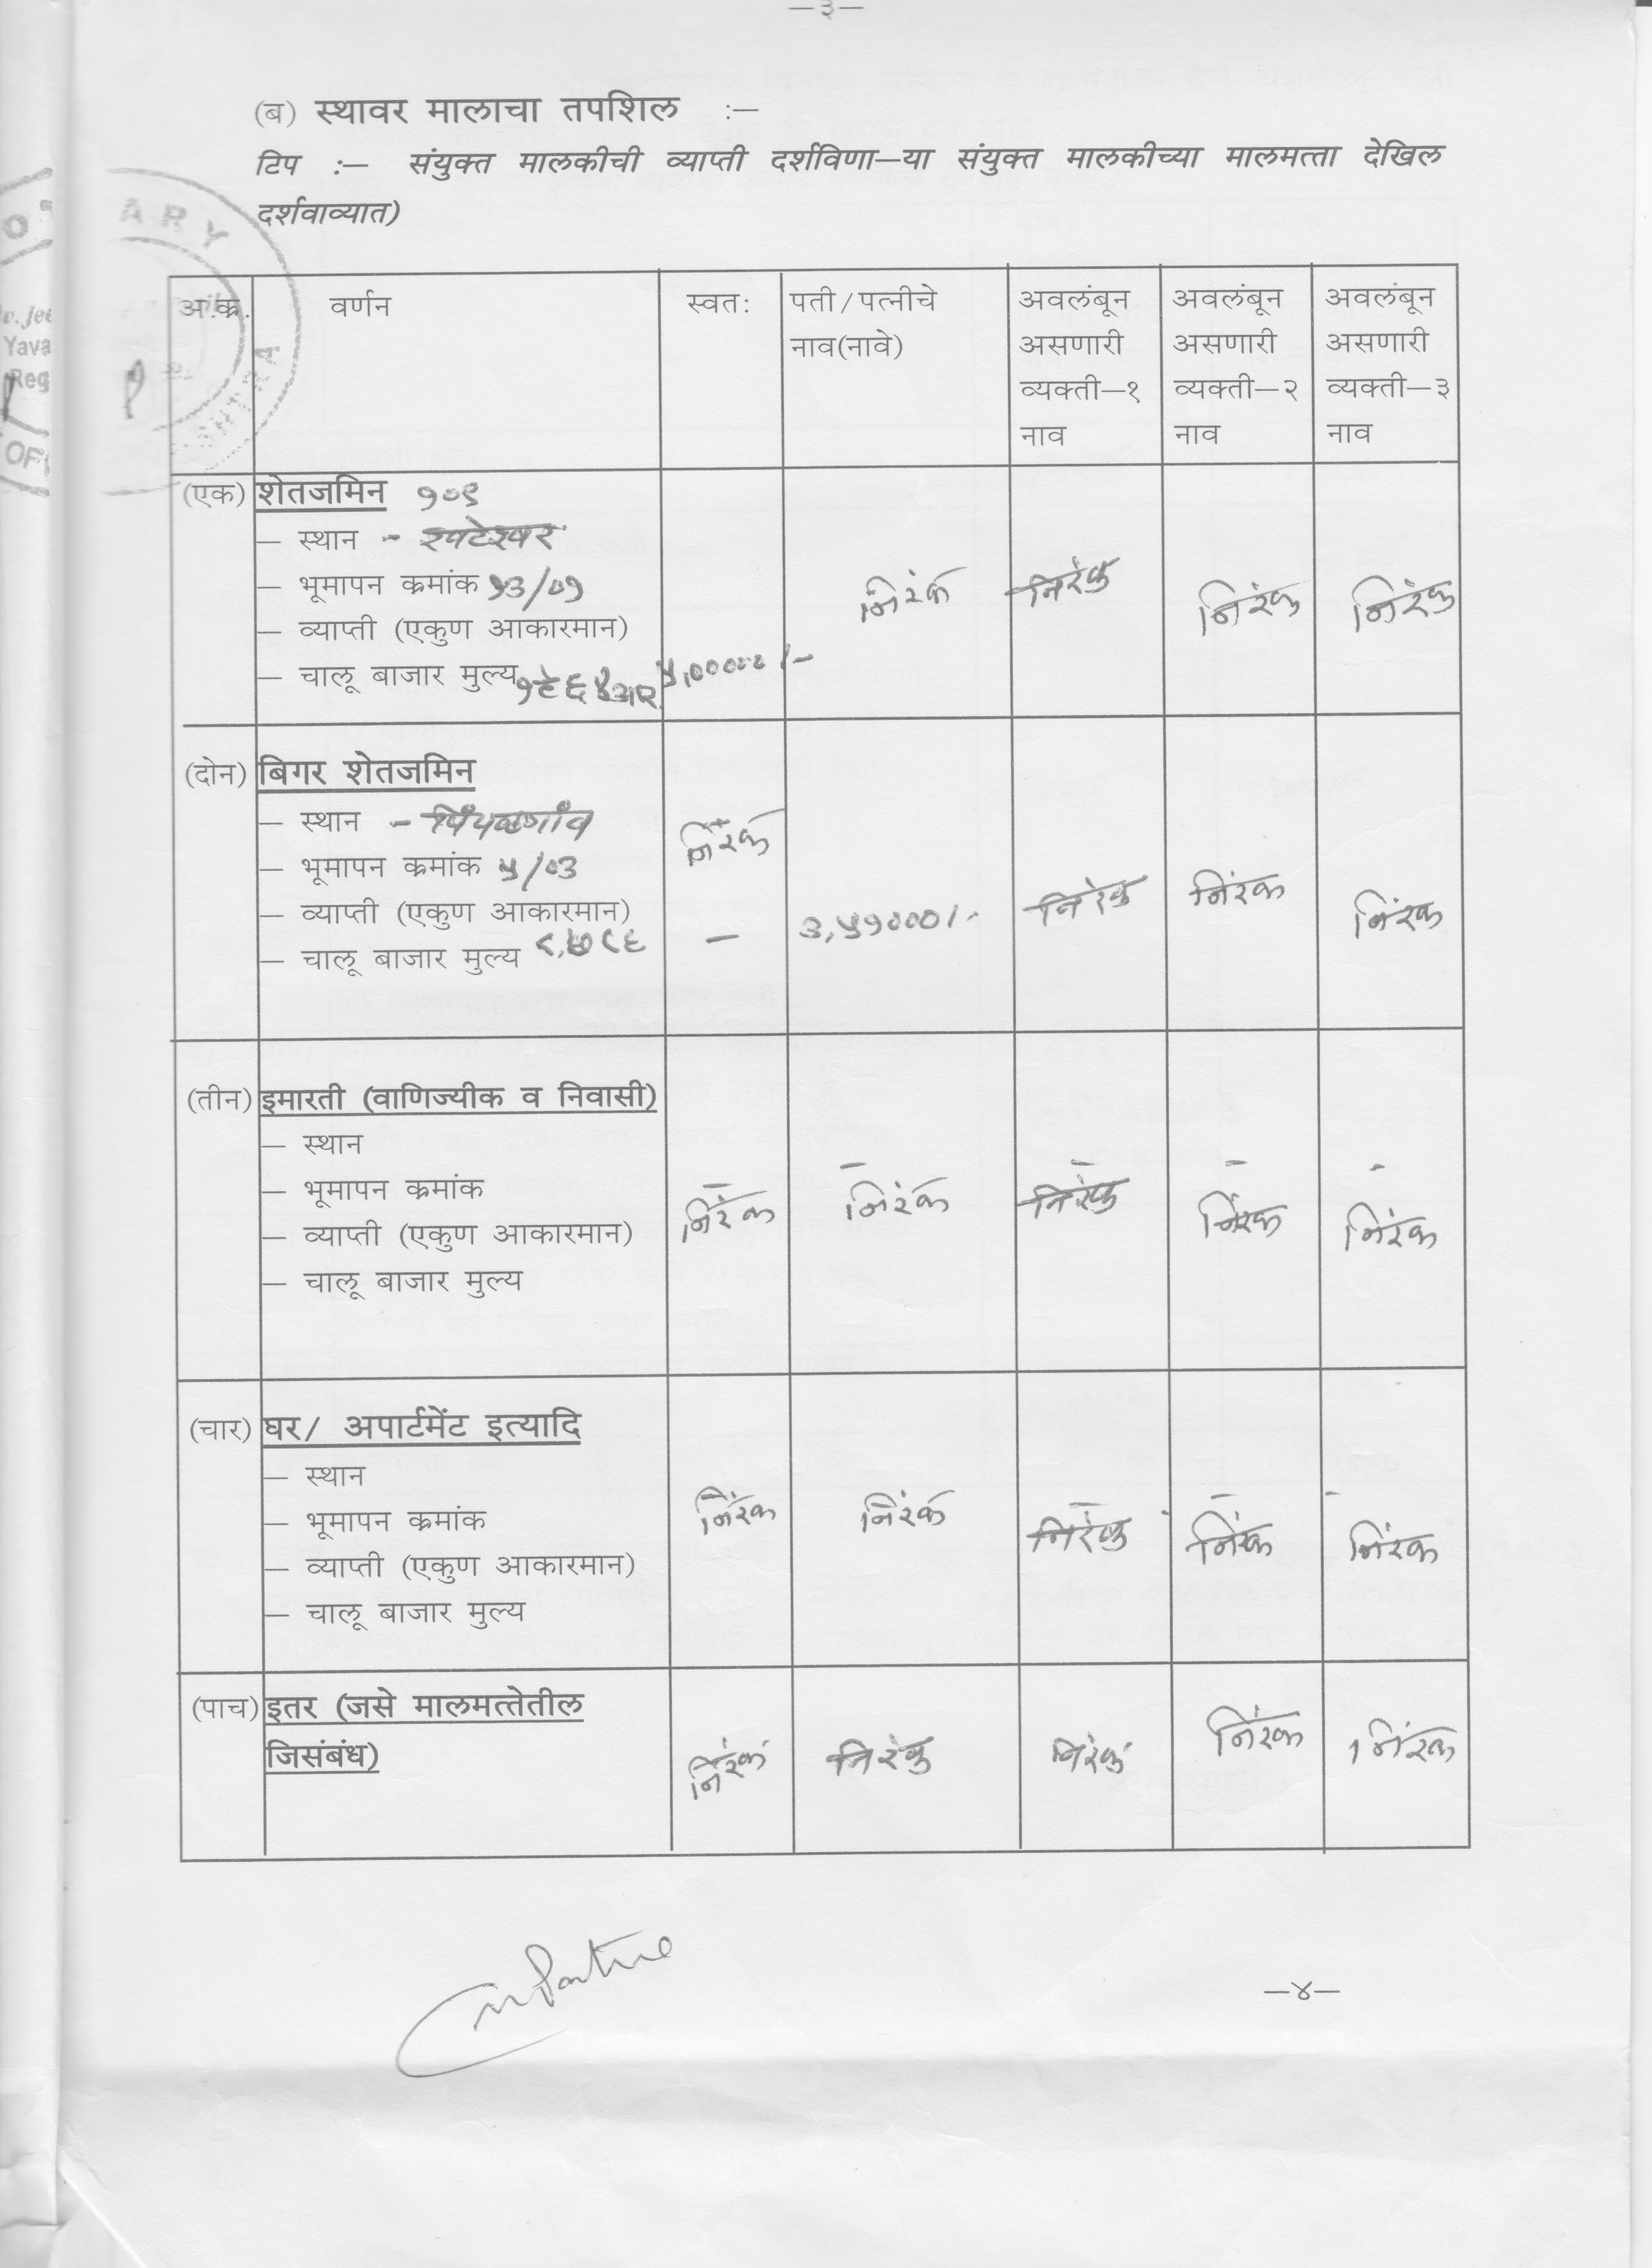 —३—
(ब) स्थावर मालाचा तपशिल :—
टिप :— संयुक्त मालकीची व्याप्ती दर्शविणा—या संयुक्त मालकीच्या मालमत्ता देखिल
दर्शवाव्यात)
NOTARY
Yava
Reg
अ.क्र. वर्णन स्वत: पती/पत्नीचे नाव(नावे) अवलंबून असणारी व्यक्ती—१ नाव अवलंबून असणारी व्यक्ती—२ नाव अवलंबून असणारी व्यक्ती—३ नाव
(एक) शेतजमिन १०९
— स्थान -
— भूमापन क्रमांक १३/०१
निरंक निरंक निरंक निरंक
— व्याप्ती (एकुण आकारमान)
— चालू बाजार मुल्य ५,०००००/-
(दोन) बिगर शेतजमिन
— स्थान - पिंपळगांव
निरंक
— भूमापन क्रमांक ५/०३
— व्याप्ती (एकुण आकारमान)
— ३,५१०००/- निरंक निरंक निरंक
— चालू बाजार मुल्य
(तीन) इमारती (वाणिज्यीक व निवासी)
— स्थान
— भूमापन क्रमांक
निरंक निरंक निरंक निरंक निरंक
— व्याप्ती (एकुण आकारमान)
— चालू बाजार मुल्य
(चार) घर/ अपार्टमेंट इत्यादि
— स्थान
— भूमापन क्रमांक
निरंक निरंक निरंक निरंक निरंक
— व्याप्ती (एकुण आकारमान)
— चालू बाजार मुल्य
(पाच) इतर (जसे मालमत्तेतील
जिसंबंध)
निरंक निरंक निरंक निरंक निरंक
—४—